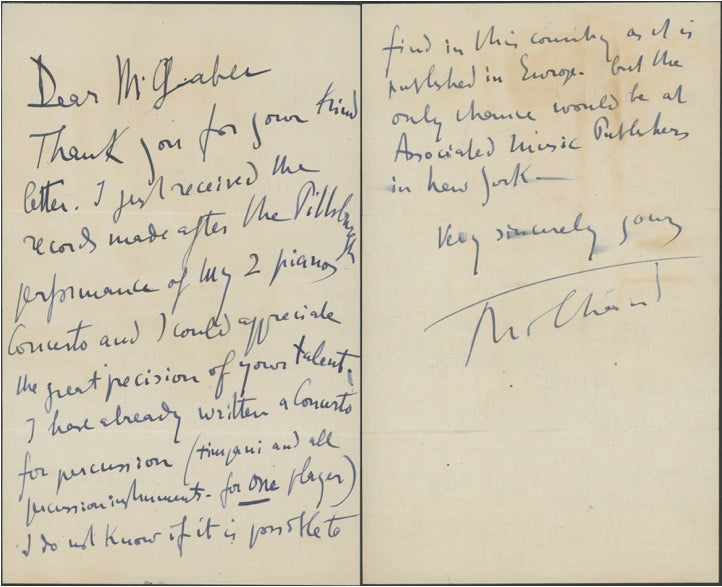 Dear Mr Graber
Thank you for your kind
letter. I just received the
records made after the Pittsburgh
performance of my 2 pianos
Concerto and I could appreciate
the great precision of your talent.
I have already written a Concerto
for percussion (timpani and all
percussion instruments - for one player)
I do not know if it is possible to
find in this country as it is
published in Europe. but the
only chance would be at
Associated Music Publishers
in New York—
Very sincerely yours